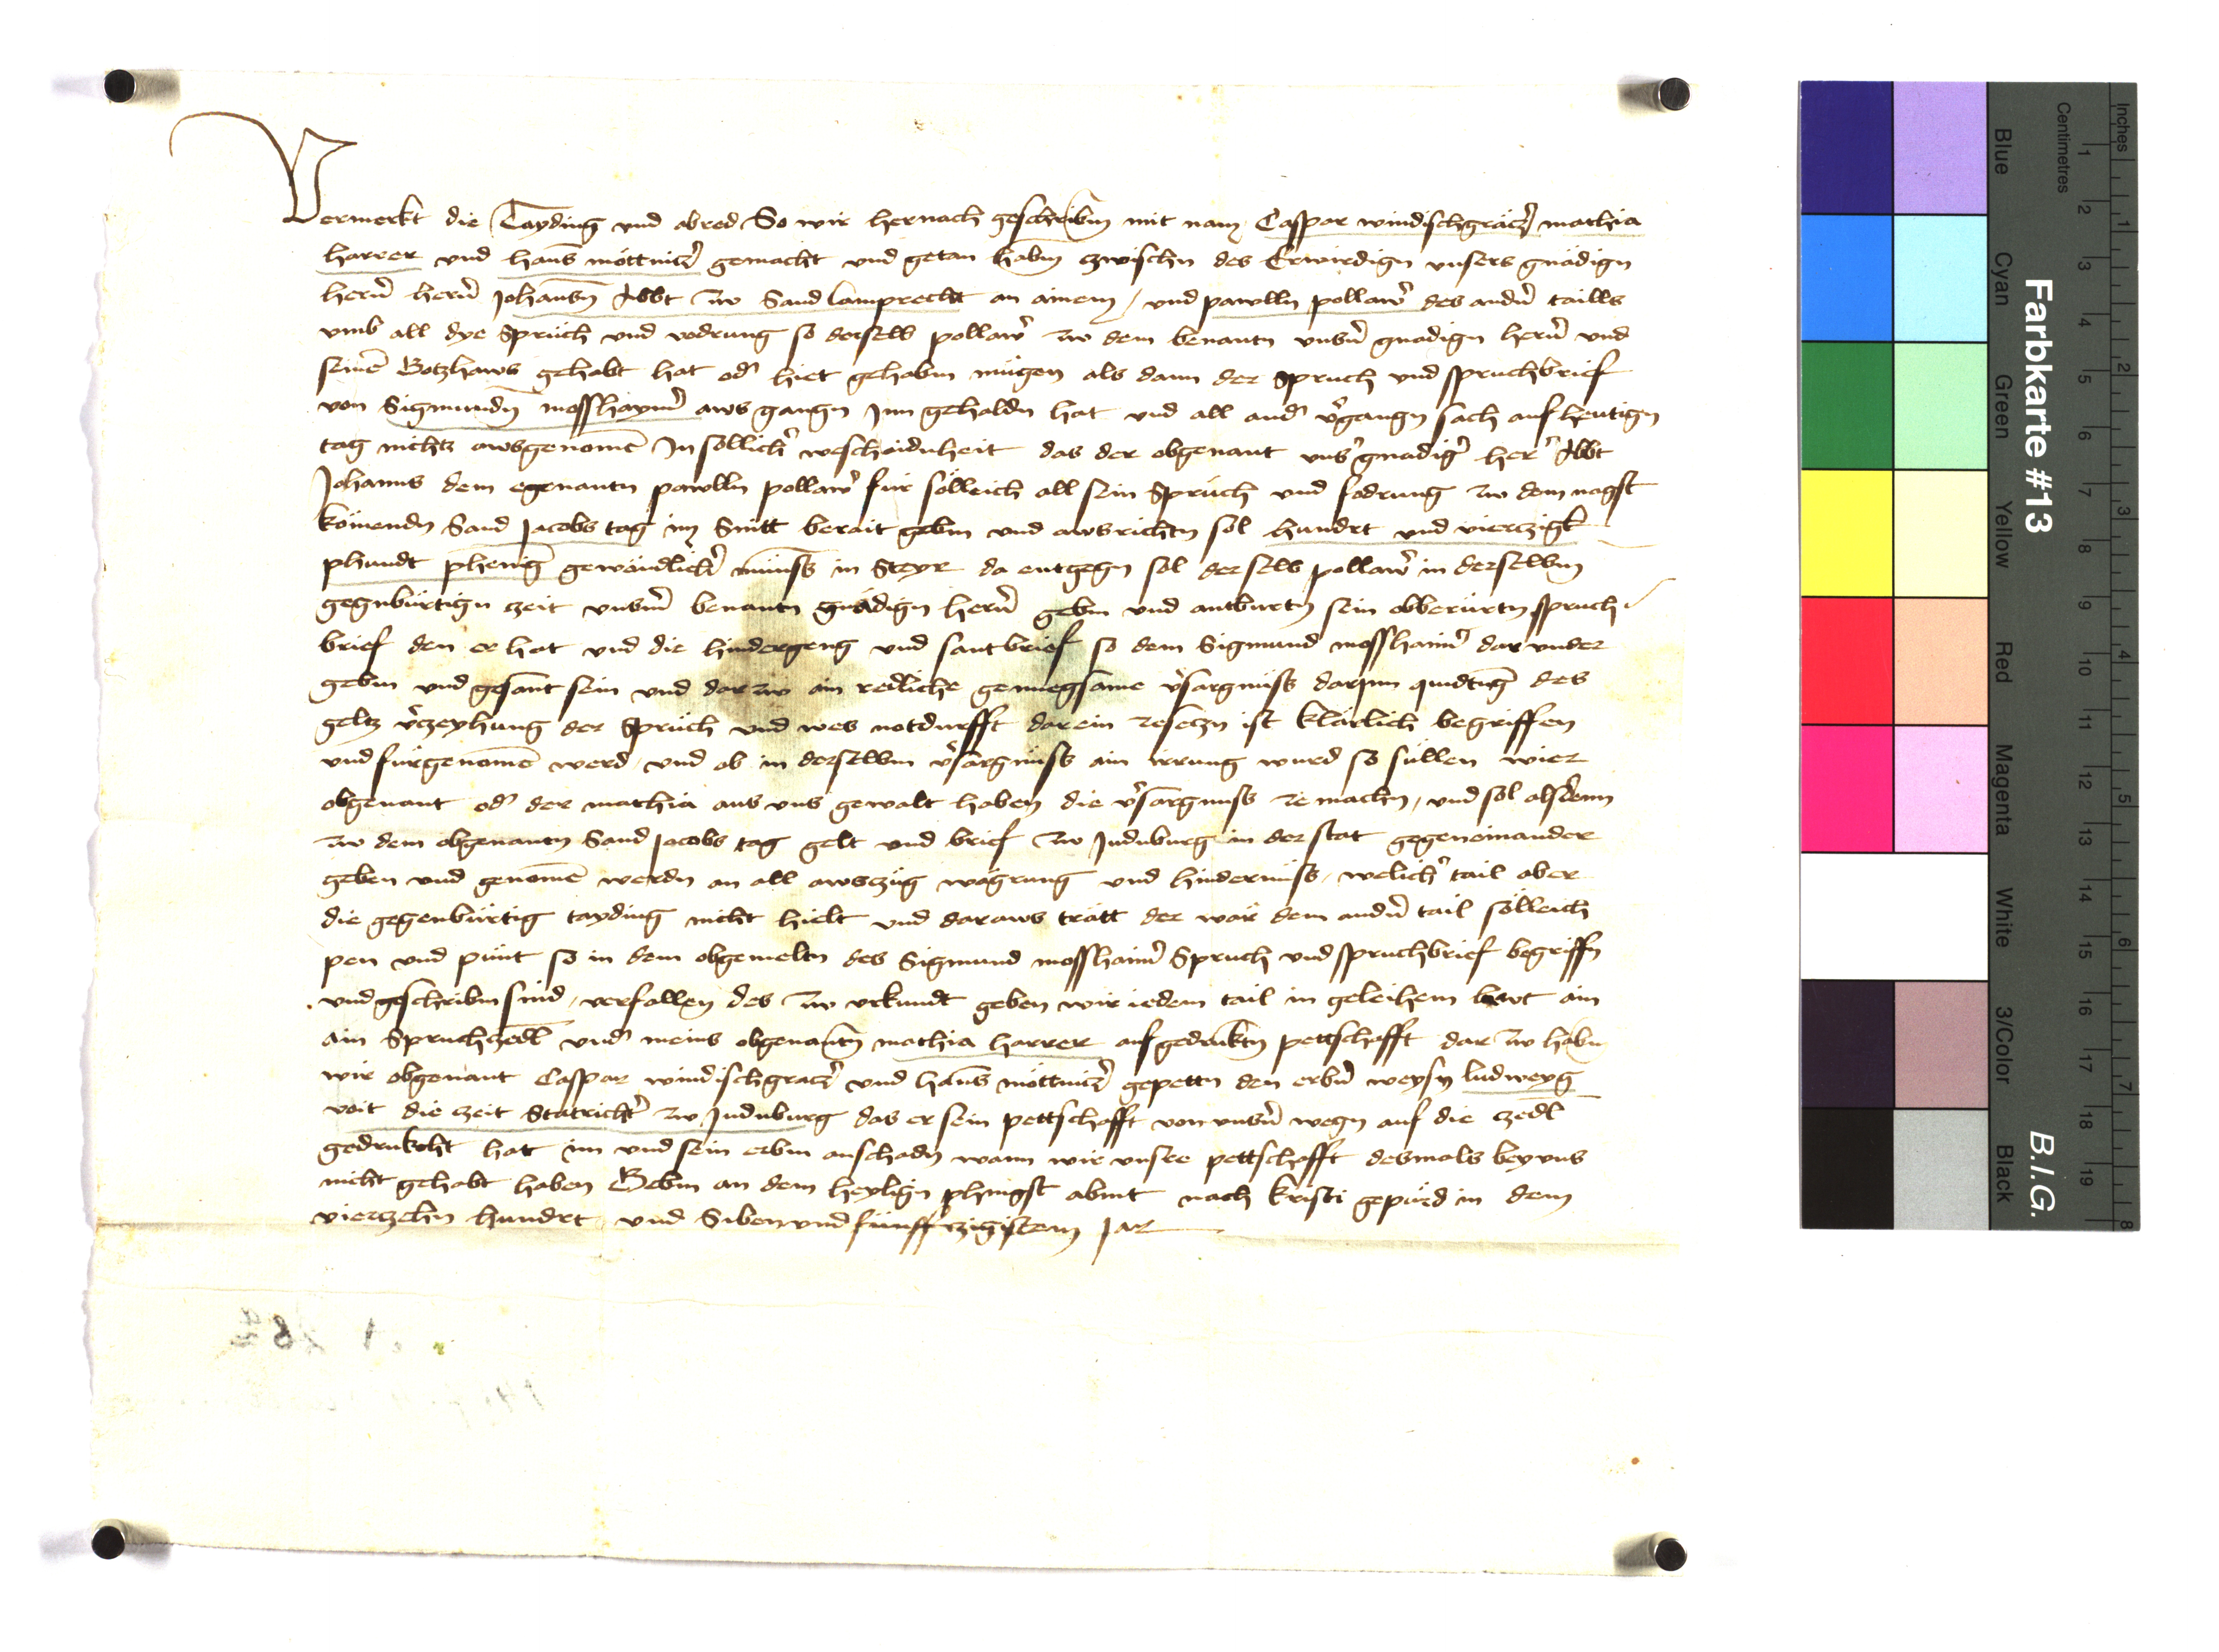 Vermerkt die Tayding vnd abred So wir hernach geschribm mit nam Caspar windischgräczer mathia
harrer vnd hanns möttniczer gemacht vnd getan habm zwischn des Erwirdign vnsers gnädign
herñ herñ Johannsn Abbt zw Sand lamprecht an ainem / vnd pawlln pollawer des andern taills
vmb all dye Sprüch vnd vodrung so derselb pollawer zw dem benantn vnserm gnadign herñ vnd
seinē Gotzhaws gehabt hat oder hiet gehabm mügen als dann der Spruch vnd spruchbrief
von Sigmundn mosshaymer aws gangn Inn gehaldn hat vnd all ander vergangn sach auf heutign
tag nichtz awsgenomē In söllicher weschaidnheit das der obgenant vnser gnadiger her Abbt
Johanns dem egenantn pawlln pollawer für sölleich all sein Sprüch vnd fodrung zw dem nagst
kömendn Sand Jacobs tag im Snitt berait gebm vnd awsrichtn sol hundrt vnd vierczigk
phundt phenig gewöndlicher münss in Steyr da entgegn sol derselb pollawer in derselbm
gegnbürtign zeit vnserm benantn gnädign herñ gebm vnd antburtn sein obberürtn spruch
brief den er hat vnd die hindergeng vnd santbrief so dem Sigmund mosshaimer dar vnder
gebm vnd gesant sein vnd dar zw ain redliche genuegsame versargnüss darjnn quidtung des
geltz verzeyhung der Sprüch vnd wes notdurfft darein zesetzn ist klärlich begriffen
vnd fürgenomē werd vnd ob in derselbm versargnüss ain irrung wurd so süllen wier
obgenant oder der mathia aus vns gewalt haben die versargnuss ze machn, vnd sol alsdenn
zw dem obgenantn Sand Jacobs tag gelt vnd brief zw Judnburg in der stat gegeneinander
geben vnd genomē werdn an all awszüg wägrung vnd hindernüss, welicher tail aber
die gegenbürtig tayding nicht hielt vnd daraws trätt der wär dem andern tail sölleich
pen vnd pünt so in dem obgemeltn des Sigmund mosshaimer Spruch vnd spruchbrief begriffn
vnd geschribm sind, verfallen des zw vrkundt geben wir iedem tail in geleihem lawt ain
ain Spruchzedl vnder meins obgenantn mathia harrer aufgedruktm pettschafft dar zw habm
wir obgenant Caspar windischgraczer vnd hanns möttniczer gepettn den erbern weysn ludweyg
voit die zeit Statrichter zw Judnburg das er sein pettschafft von vnsern wegn auf die zedl
gedrukcht hat im vnd sein erbm anschadn wann wir vnsere pettschafft desmals bey vns
nicht gehabt haben Gebm an dem heylign phingst abent nach kristi gepürd in dem
vierzehn hundrt vnd Siben vnd fünffczigistem Jar
Farbkarte #13
B.I.G.
Inches
Centimetres
1 2 3 4 5 6 7 8 9 10 11 12 13 14 15 16 17 18 19
1 2 3 4 5 6 7 8
Blue
Cyan
Green
Yellow
Red
Magenta
White
3/Color
Black